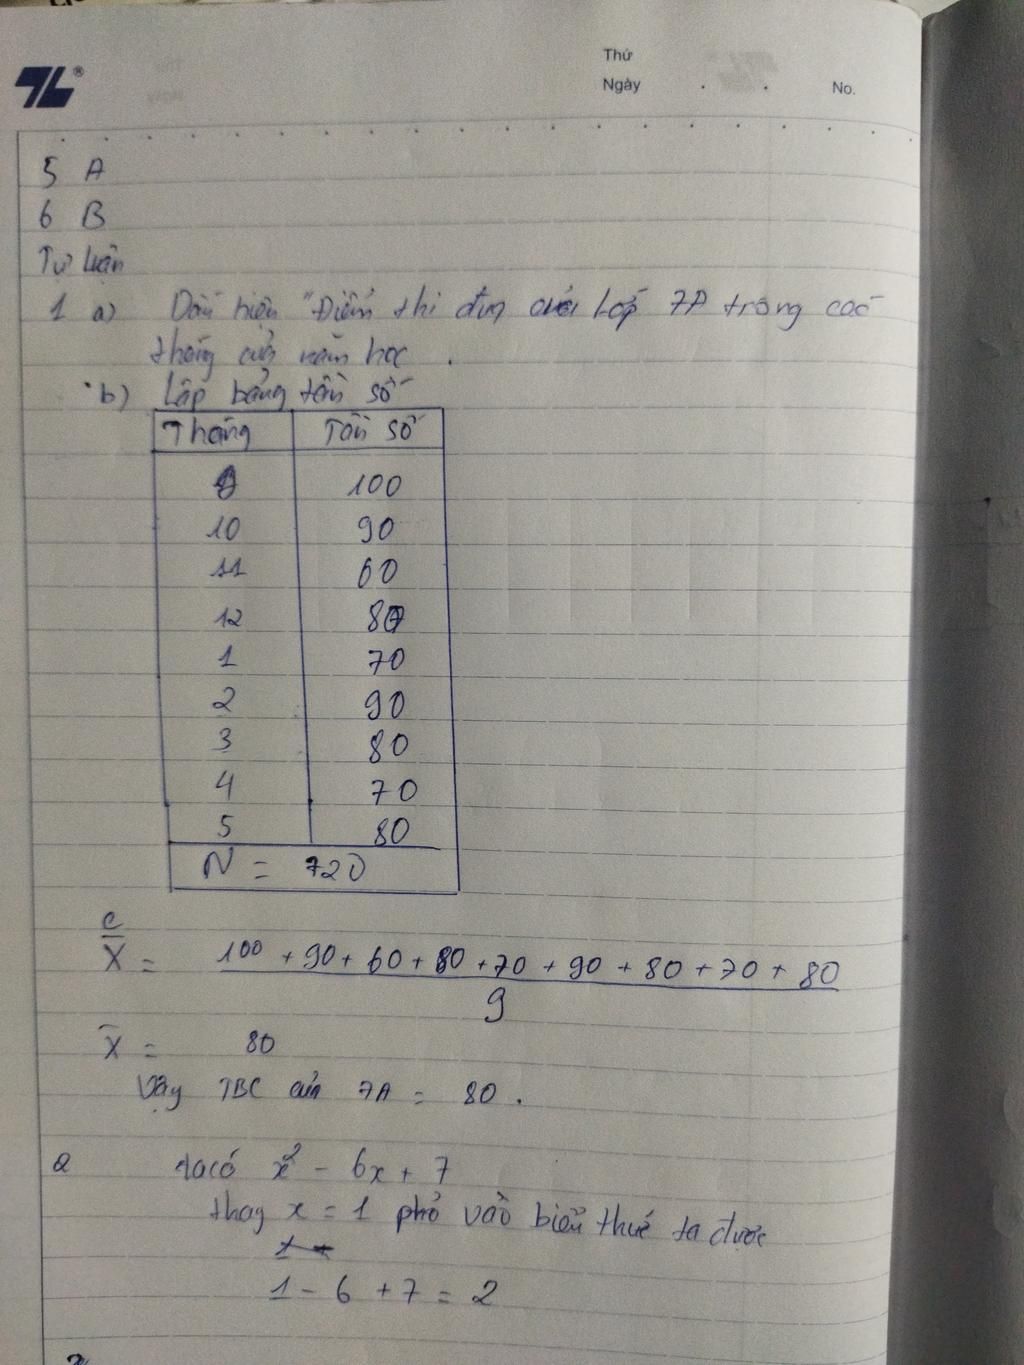 Thứ
Ngày . . No.
5 A
6 B
Tự luận
1 a) Dấu hiệu "Điểm thi đua của Lớp 7A trong các
tháng của năm học .
b) Lập bảng tần số
Tháng Tần số
9 100
10 90
11 60
12 80
1 70
2 90
3 80
4 70
5 80
N = 720
c
X̄ = 100 + 90 + 60 + 80 + 70 + 90 + 80 + 70 + 80
9
X̄ = 80
Vậy TBC của 7A = 80 .
2 ta có x² - 6x + 7
thay x = 1 phỏ vào biểu thứ ta được
1 - 6 + 7 = 2